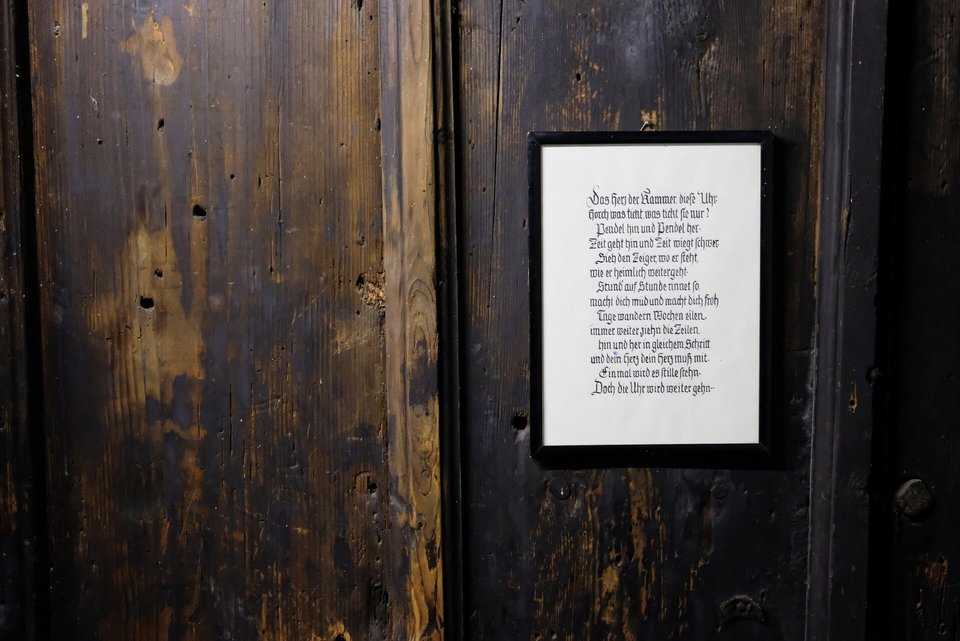 Das Herz der Kammer, diese Uhr.
Horch was tickt was tickt sie nur?
Pendel hin und Pendel her.
Zeit geht hin und Zeit wiegt schwer
Sieh den Zeiger, wo er steht,
wie er heimlich weitergeht.
Stund auf Stunde rinnet so
macht dich müd und macht dich froh
Tage wandern Wochen eilen
immer weiter ziehn die Zeilen
hin und her in gleichem Schritt
und dein Herz dein Herz muß mit.
Einmal wird es stille stehn.
Doch die Uhr wird weiter gehn.